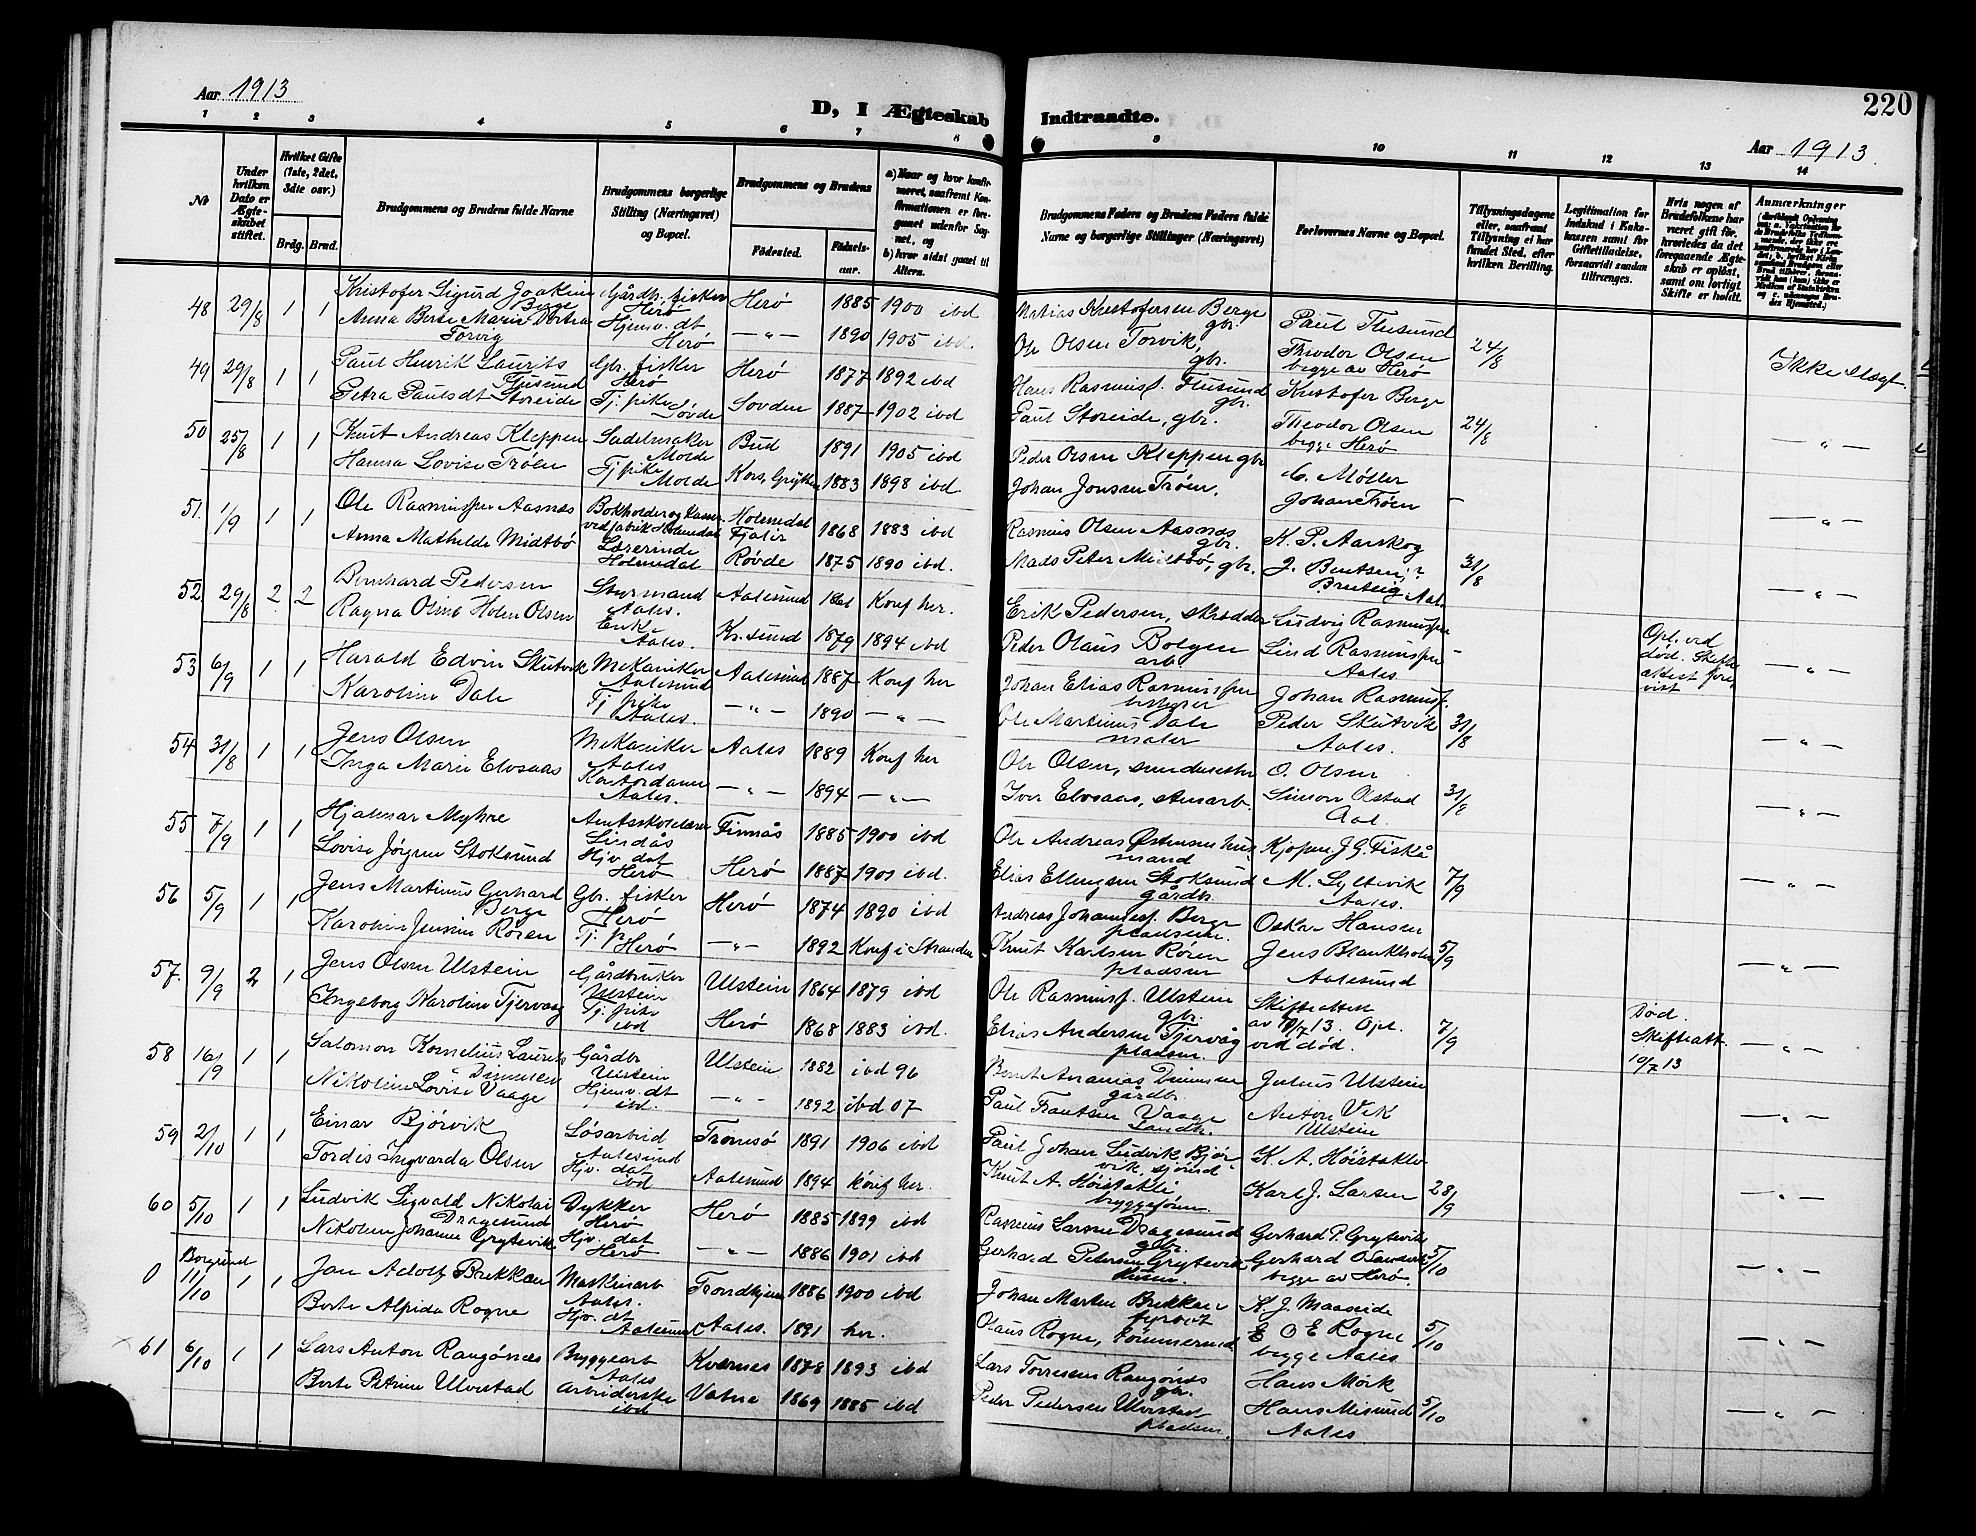 Aar 1913
D, I Ægteskab Indtraadte.
220
Aar 1913.
1 2 3 4 5 6 7 8 9 10 11 12 13 14
No
Under hvilken Dato er Ægteskabet stiftet.
Hvilket Gifte (1ste, 2det, 3die osv.)
Brdg. Brud.
Brudgommens og Brudens fulde Navne
Brudgommens borgerlige Stilling (Næringsvei) og Bopæl.
Brudgommens og Brudens
Fødested. Fødselsaar.
Brudgommens Faders og Brudens Faders fulde Navne og borgerlige Stillinger (Næringsvei)
Forlovernes Navne og Bopæl.
Tillysningsdagene eller, saafremt Tillysning ei har fundet Sted, efter hvilken Bevilling.
Hvis nogen af Brudefolkene har været gift før, hvorledes da det foregaaende Ægteskab er opløst, samt om lovligt Skifte er holdt.
Anmærkninger
48 29/8 1 1 Kristofer Sigurd Joakim Berge Gårdbr. fisker Herö Herö 1885 1900 ibd Matias Kristofersen Berge gbr. Paul Flusund 24/8 Ikke slægt.
Anna Berte Marie Dortea Torvig Hjemv. dt Herö —"— 1890 1905 ibd. Ole Olsen Torvik, gbr. Theodor Olsen begge av Herö
49 29/8 1 1 Paul Henrik Laurits Flusund Gbr. fisker Herö Herö 1877 1892 ibd Hans Rasmus. Flusund gbr. Kristofer Berge 24/8 —"—
Petra Paulsdt Storeide Tj. pike Sövde Sovden 1887 1902 ibd Paul Storeide, gbr. Theodor Olsen begge Herö
50 25/8 1 1 Knut Andreas Kleppen Sadelmaker Molde Bud 1891 1905 ibd Peder Olsen Kleppen gbr C. Møller — —"—
Hanna Lovise Tröen Tj. pike Molde Kors, Grytten 1883 1898 ibd. Johan Jonsen Tröen. Johan Tröen
51. 1/9 1 1 Ole Rasmussen Aasnæs Holmedal Fjaler 1868 1883 ibd Rasmus Olsen Aasnæs gbr. K. P. Aarskog 31/8 —"—
Anna Mathilde Midtbö Lærerinde Holmedal Røvde 1875 1890 ibd. Mads Peter Midtbö, gbr.
52 29/8 2 2 Bernhard Pedersen Styrmand Aales. Aalesund Konf her. Erik Pedersen, skrædder Ludvig Rasmussen — Opl. ved död. —"—
Ragna Oline Holm Olsen Enke Aales. Kr.sund 1879 1894 ibd Peder Olaus Bolgen arb. Lind Rasmussen Aales.
53 6/9 1 1 Harald Edvin Skutvik Mekaniker Aalesund Aalesund 1887 Konf her Johan Elias Rasmussen Johan Rasmuss. 31/8 —"—
Karoline Dale Tj. pike Aales. —"— 1890 —"— Ole Martinus Dale maler Peder Skutvik Aales.
54 31/8 1 1 Jens Olsen Mekaniker Aales Aales 1889 Konf her Ole Olsen, O. Olsen 31/8 —"—
Inga Marie Elvsaas Kontordame Aales. —"— 1894 —"— Iver Elvsaas, Simon Olstad Aal.
55 7/9 1 1 Hjalmar Myhre Amtsskolelærer Lindås Finnås 1885 1900 ibd Ole Andreas Östensen husmand Kjøpm. J. G. Fiskå 7/9 —"—
Lovise Jørgine Stoksund Hjv. dat Herö Herö 1887 1901 ibd. Elias Ellingsen Stoksund gårdbr. M. Syltevik Aales.
56 5/9 1 1 Jens Martinus Gerhard Berge Gbr. fisker Herö Herö 1874 1890 ibd Andreas Johannes. Berge pladsm. Oskar Hansen 5/9 —"—
Karoline Jensine Rören Tj. p. Herö —"— 1892 Konf i Stranden Knut Karlsen Rören pladsm Jens Blankholm Aalesund
57. 9/9 2 1 Jens Olsen Ulstein Gårdbruker Ulstein Ulstein 1864 1879 ibd Ole Rasmuss. Ulstein gbr. Skifteatten av 10/7 13. Opl. ved död. 7/9 Död. Skifteatt. 10/7 13 —"—
Ingeborg Karoline Tjervaag Tj. pike ibd Herö 1868 1883 ibd. Elias Andersen Tjervåg pladsm.
58 16/9 1 1 Salomon Kornelius Laurits Dimmen Gårdbr Ulstein Ulstein 1882 ibd 96 Bernt Ananias Dimmen gårdbr. Julius Ulstein —"—
Nikoline Lovise Vaage Hjemv. dt ibd. —"— 1892 ibd 07 Paul Frantsen Vaage Landh. Anton Vik Ulstein
59 2/10 1 1 Einar Bjørvik Løsarbeid Aalesund Tromsö 1891 1906 ibd Paul Johan Ludvik Bjørvik, sjömd K. A. Höistakli 28/9 —"—
Tordis Ingvarda Olsen Hjv. dat ibd Aalesund 1894 konf her. Knut A. Höistakli Karl J. Larsen
60 5/10 1 1 Ludvik Sigvald Nikolai Dragesund Dykker Herö Herö 1885 1899 ibd Rasmus Larsen Dragesund gbr. Gerhard P. Grytevik 5/10 —"—
Nikoline Johanne Grytevik Hjv. dat Herö —"— 1886 1901 ibd Gerhard Petersen Grytevik begge av Herö.
0 Borgund 11/10 1 1 Jan Adolf Brekkan Maskinarb Aales. Trondhjem 1886 1900 ibd Johan Martin Brekkan K. J. Maaseide 5/10 —"—
Berte Alpida Rogne Hjv. dt Aalesund Aales. 1891 her. Olaus Rogne, tömmermd E O E Rogne begge Aales.
61 6/10 1 1 Lars Anton Rangönæs Byggearb Aales Kvernes 1878 1893 ibd Lars Torresen Rangönæs gbr. Hans Mörk 5/10 —"—
Berte Petrine Ulvestad Arbeiderske ibd Vatne 1869 1885 ibd Peder Pedersen Ulvestad pladsm. Hans Misund Aales